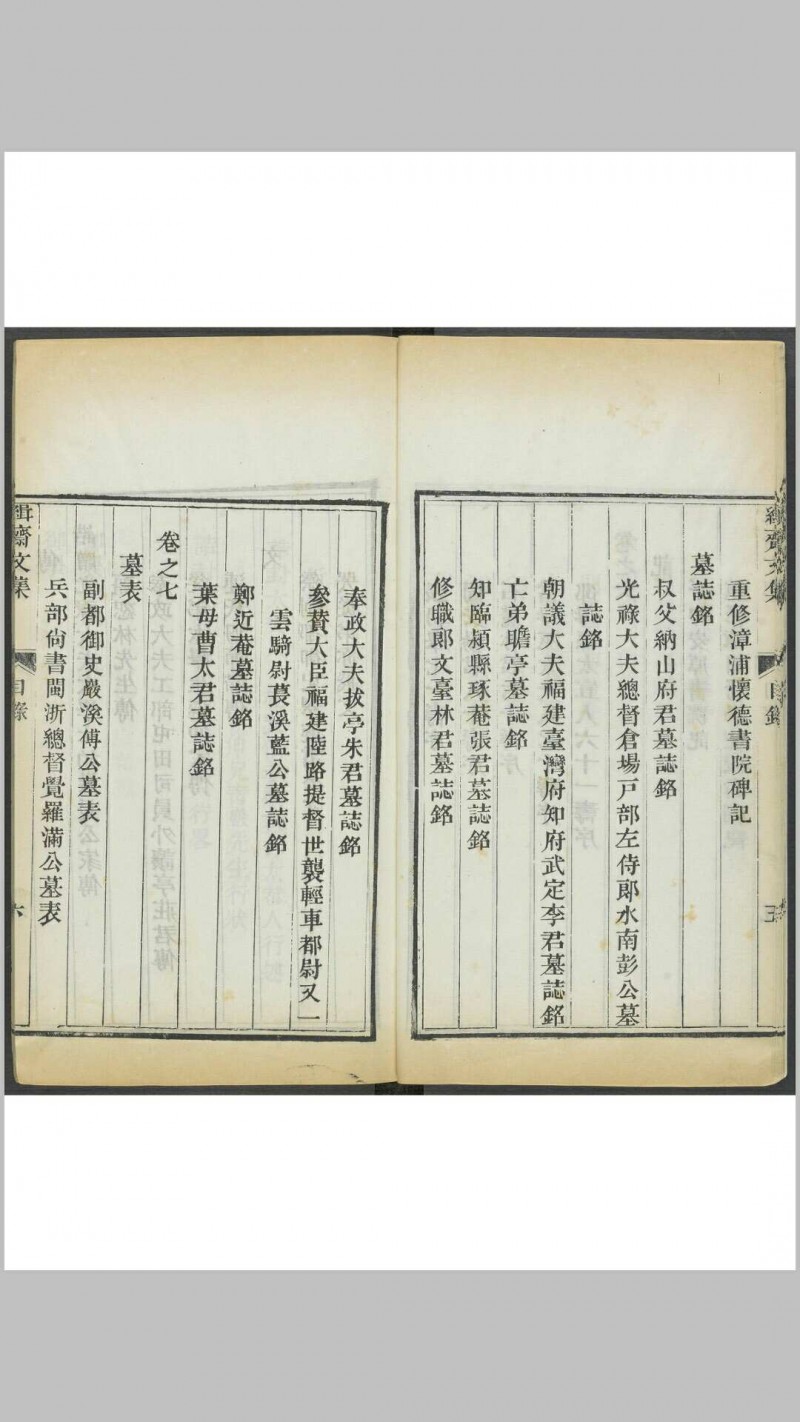 緝齋文集
目錄
重修漳浦懷德書院碑記
墓誌銘
叔父納山府君墓誌銘
光祿大夫總督倉場戸部左侍郎水南彭公墓
誌銘
朝議大夫福建臺灣府知府武定李君墓誌銘
亡弟瞻亭墓誌銘
知臨潁縣琢菴張君墓誌銘
修職郎文臺林君墓誌銘
奉政大夫拔亭朱君墓誌銘
參贊大臣福建陸路提督世襲輕車都尉又一
雲騎尉萇溪藍公墓誌銘
鄭近菴墓誌銘
葉母曹太君墓誌銘
卷之七
墓表
副都御史巖溪傅公墓表
兵部尙書閩浙總督覺羅滿公墓表
緝齋文集
目錄
六